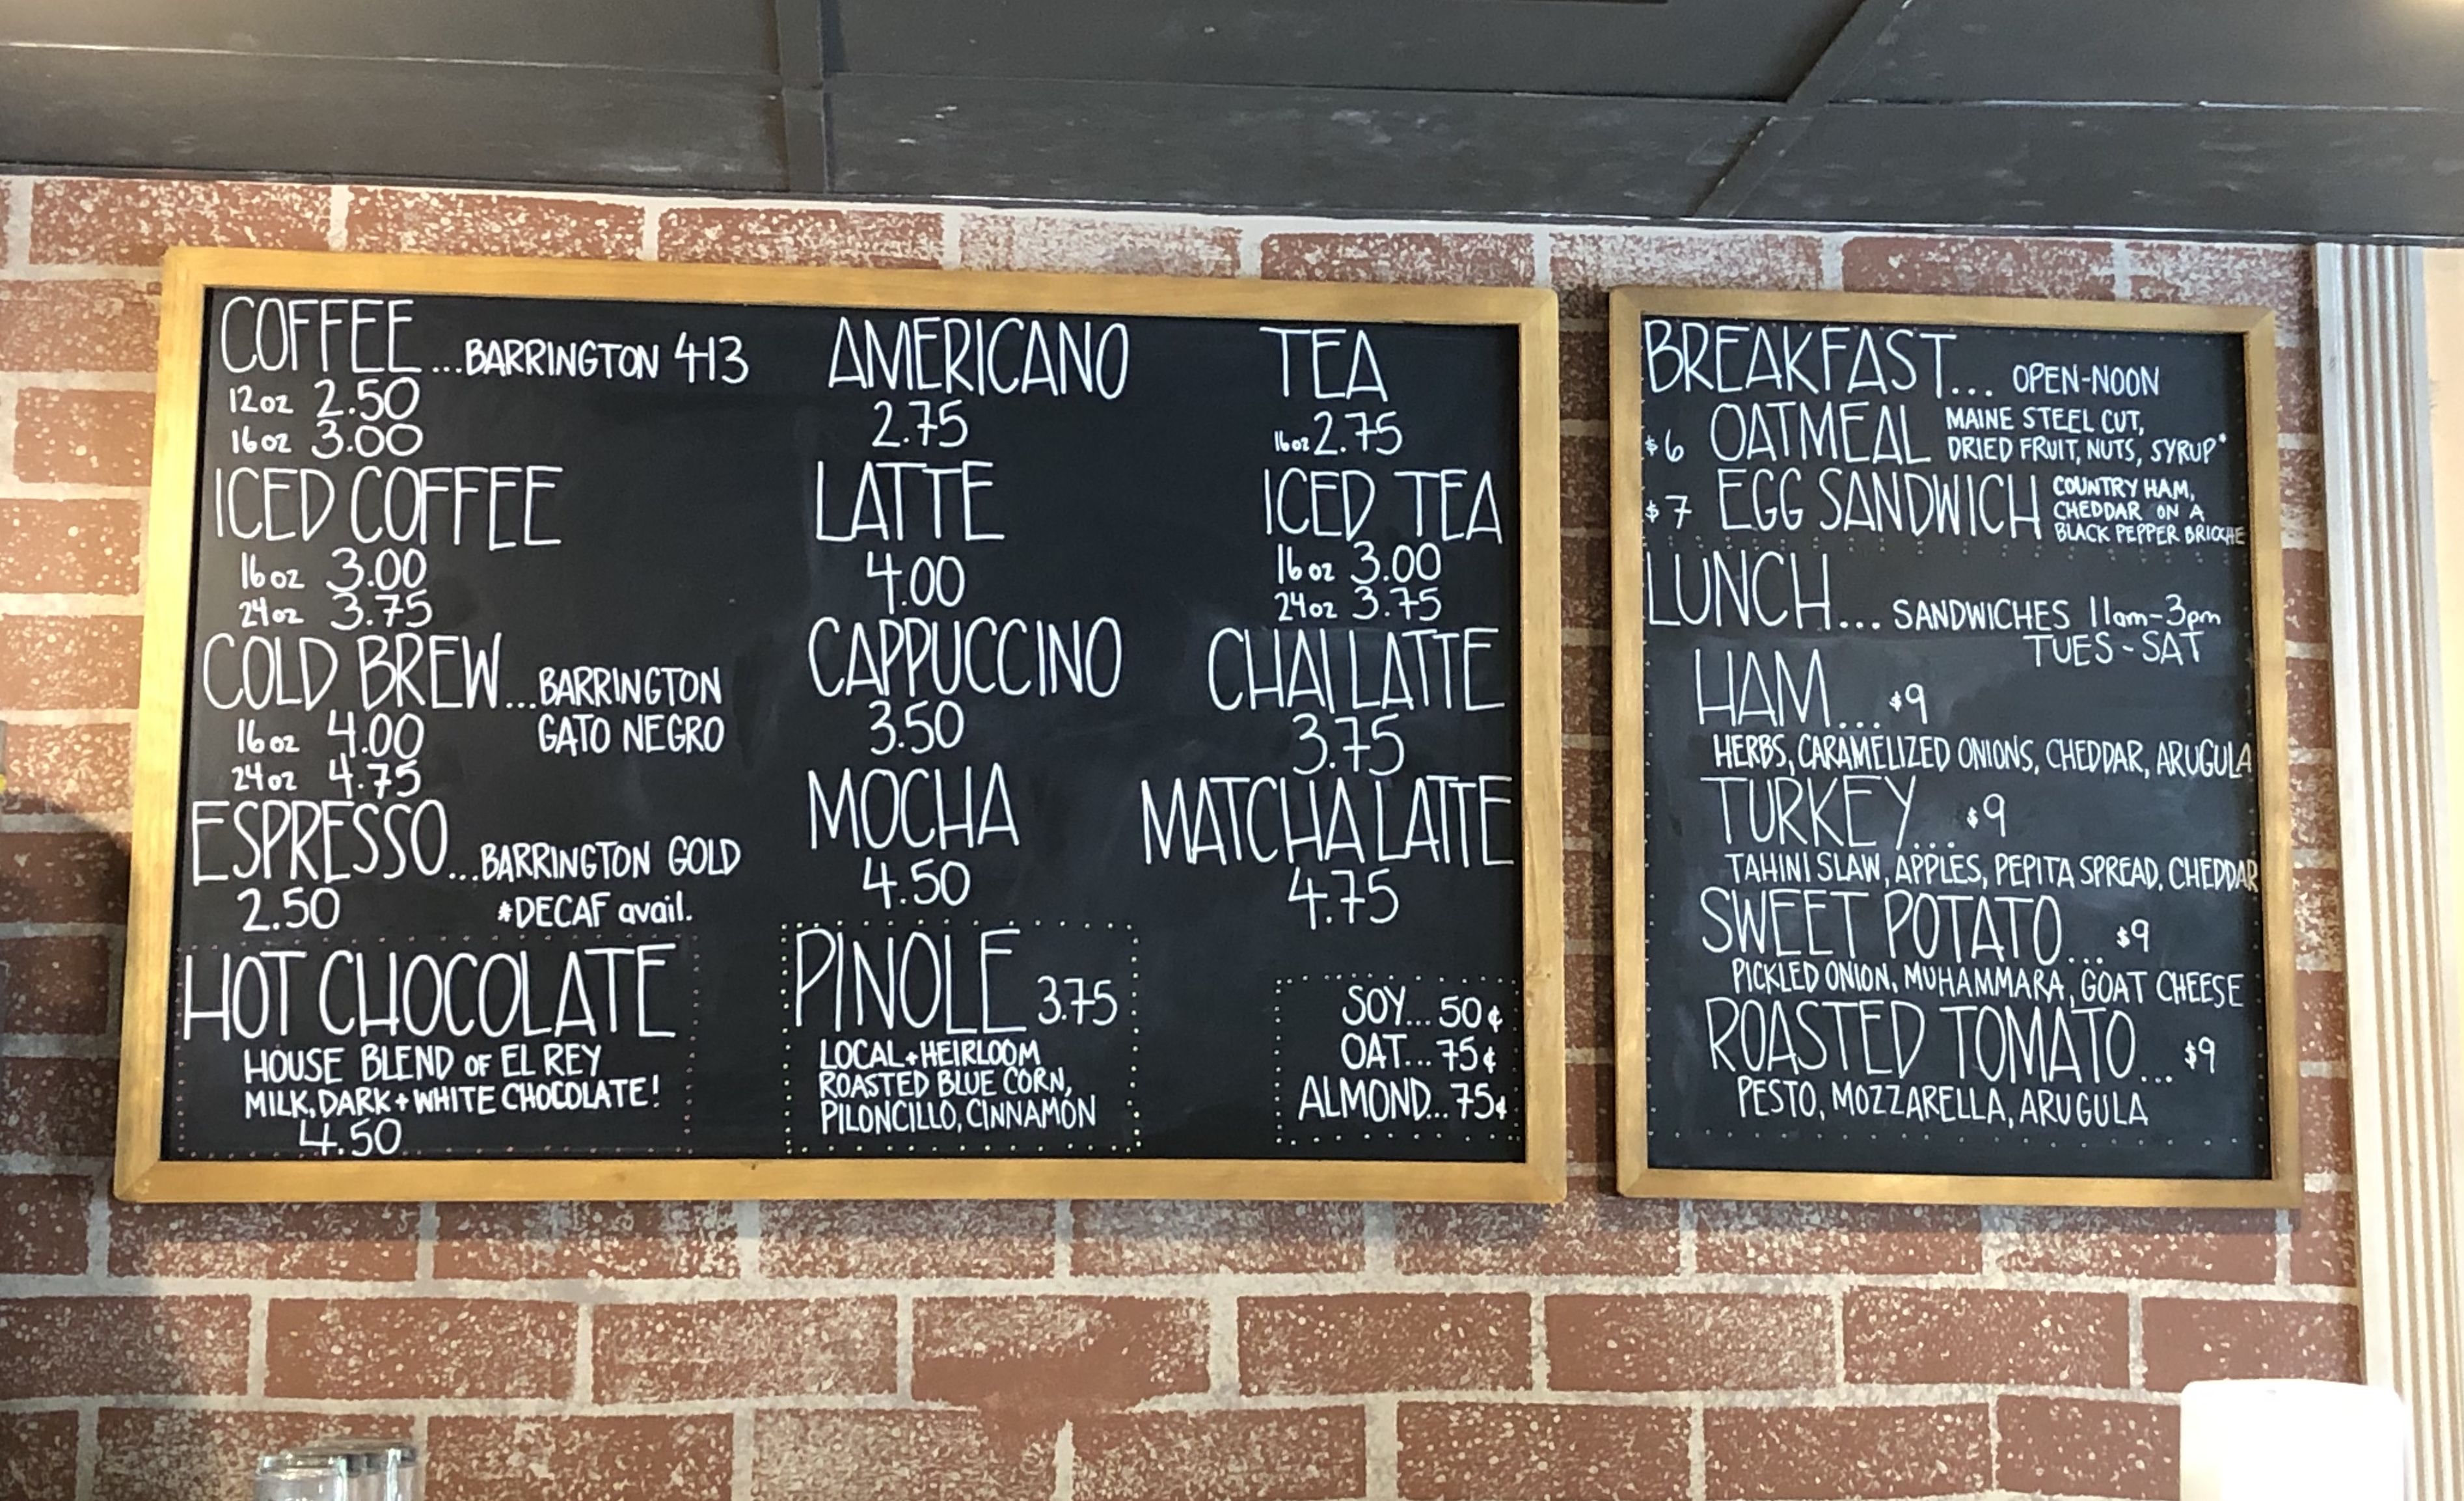 COFFEE...BARRINGTON 413
12oz 2.50
16oz 3.00
ICED COFFEE
16oz 3.00
24oz 3.75
COLD BREW...BARRINGTON
GATO NEGRO
16oz 4.00
24oz 4.75
ESPRESSO...BARRINGTON GOLD
2.50 *DECAF avail.
HOT CHOCOLATE
HOUSE BLEND OF EL REY
MILK, DARK + WHITE CHOCOLATE!
4.50
AMERICANO
2.75
LATTE
4.00
CAPPUCCINO
3.50
MOCHA
4.50
PINOLE 3.75
LOCAL + HEIRLOOM
ROASTED BLUE CORN,
PILONCILLO, CINNAMON
TEA
16oz 2.75
ICED TEA
16oz 3.00
24oz 3.75
CHAI LATTE
3.75
MATCHA LATTE
4.75
SOY... 50¢
OAT... 75¢
ALMOND... 75¢
BREAKFAST... OPEN-NOON
$6 OATMEAL MAINE STEEL CUT,
DRIED FRUIT, NUTS, SYRUP*
$7 EGG SANDWICH COUNTRY HAM,
CHEDDAR ON A
BLACK PEPPER BRIOCHE
LUNCH... SANDWICHES 11am-3pm
TUES-SAT
HAM... $9
HERBS, CARAMELIZED ONIONS, CHEDDAR, ARUGULA
TURKEY... $9
TAHINI SLAW, APPLES, PEPITA SPREAD, CHEDDAR
SWEET POTATO... $9
PICKLED ONION, MUHAMMARA, GOAT CHEESE
ROASTED TOMATO... $9
PESTO, MOZZARELLA, ARUGULA